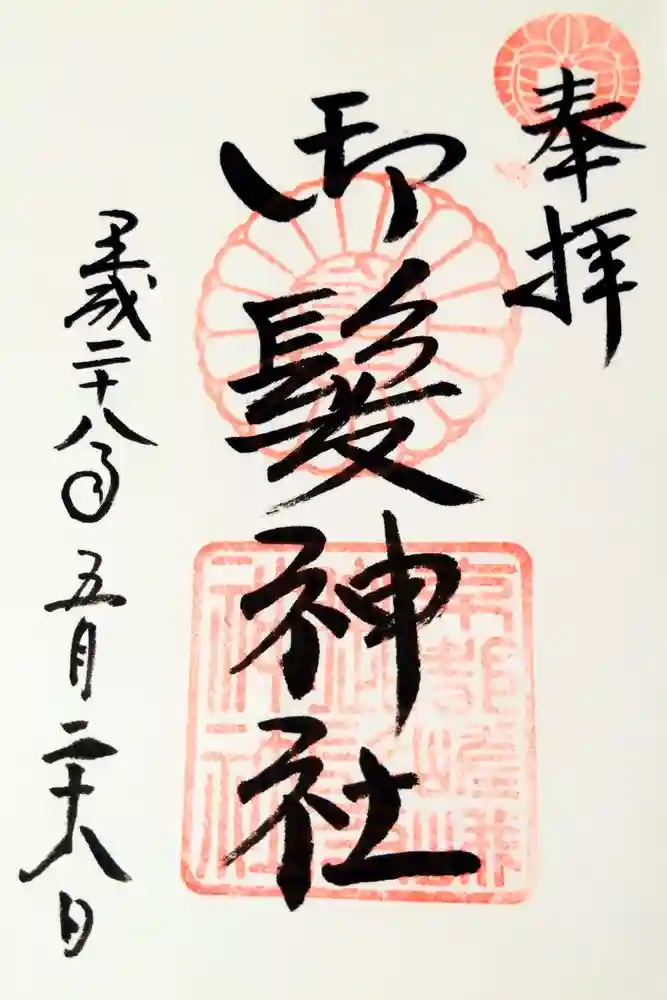 奉拝
御髪神社
平成二十八年五月二十八日